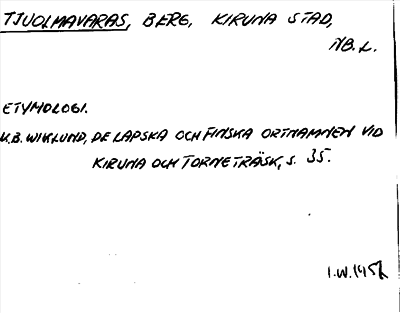 TJUOLMAVARAS, BERG, KIRUNA STAD,
NB.L.
ETYMOLOGI.
K.B. WIKLUND, DE LAPSKA OCH FINSKA ORTNAMNEN VID
KIRUNA OCH TORNETRÄSK, S. 35.
I.W. 1957